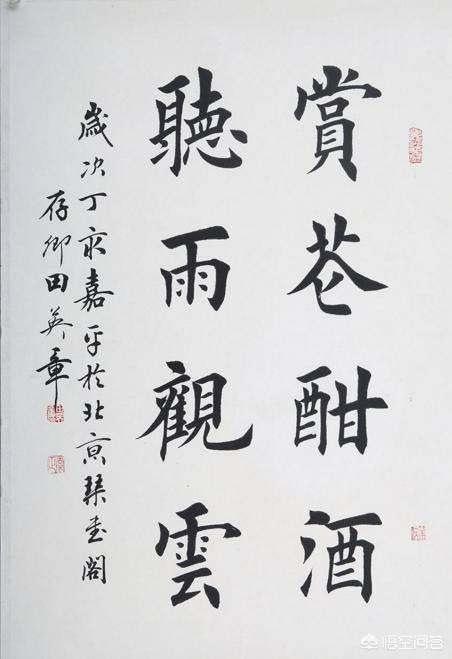 賞花酣酒
聽雨觀雲
歲次丁亥嘉平於北京琴書閣
存卿田英章
悟空问答